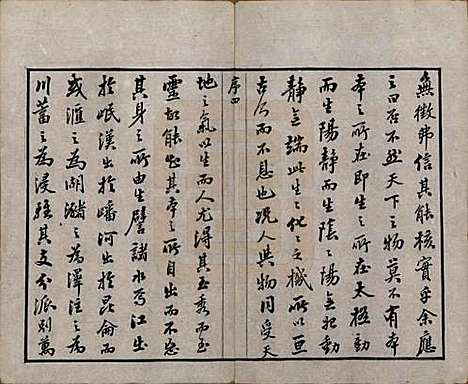 無徵弗信其能核實乎余應
之曰否不然天下之物莫不有本
本之所在即生之所在太極動
而生陽靜而生陰陰陽無始動
靜無端此生生化化之機所以亘
古今而不息也況人與物同受天
序四
地之氣以生而人尤得其至秀而至
靈故能知其本之所自出而不忘
其身之所由生譬諸水焉江生
於岷漢出於嶓河出於昆侖而
或滙之為湖瀦之為澤注之為
川蓄之為浸雖其支分派別萬